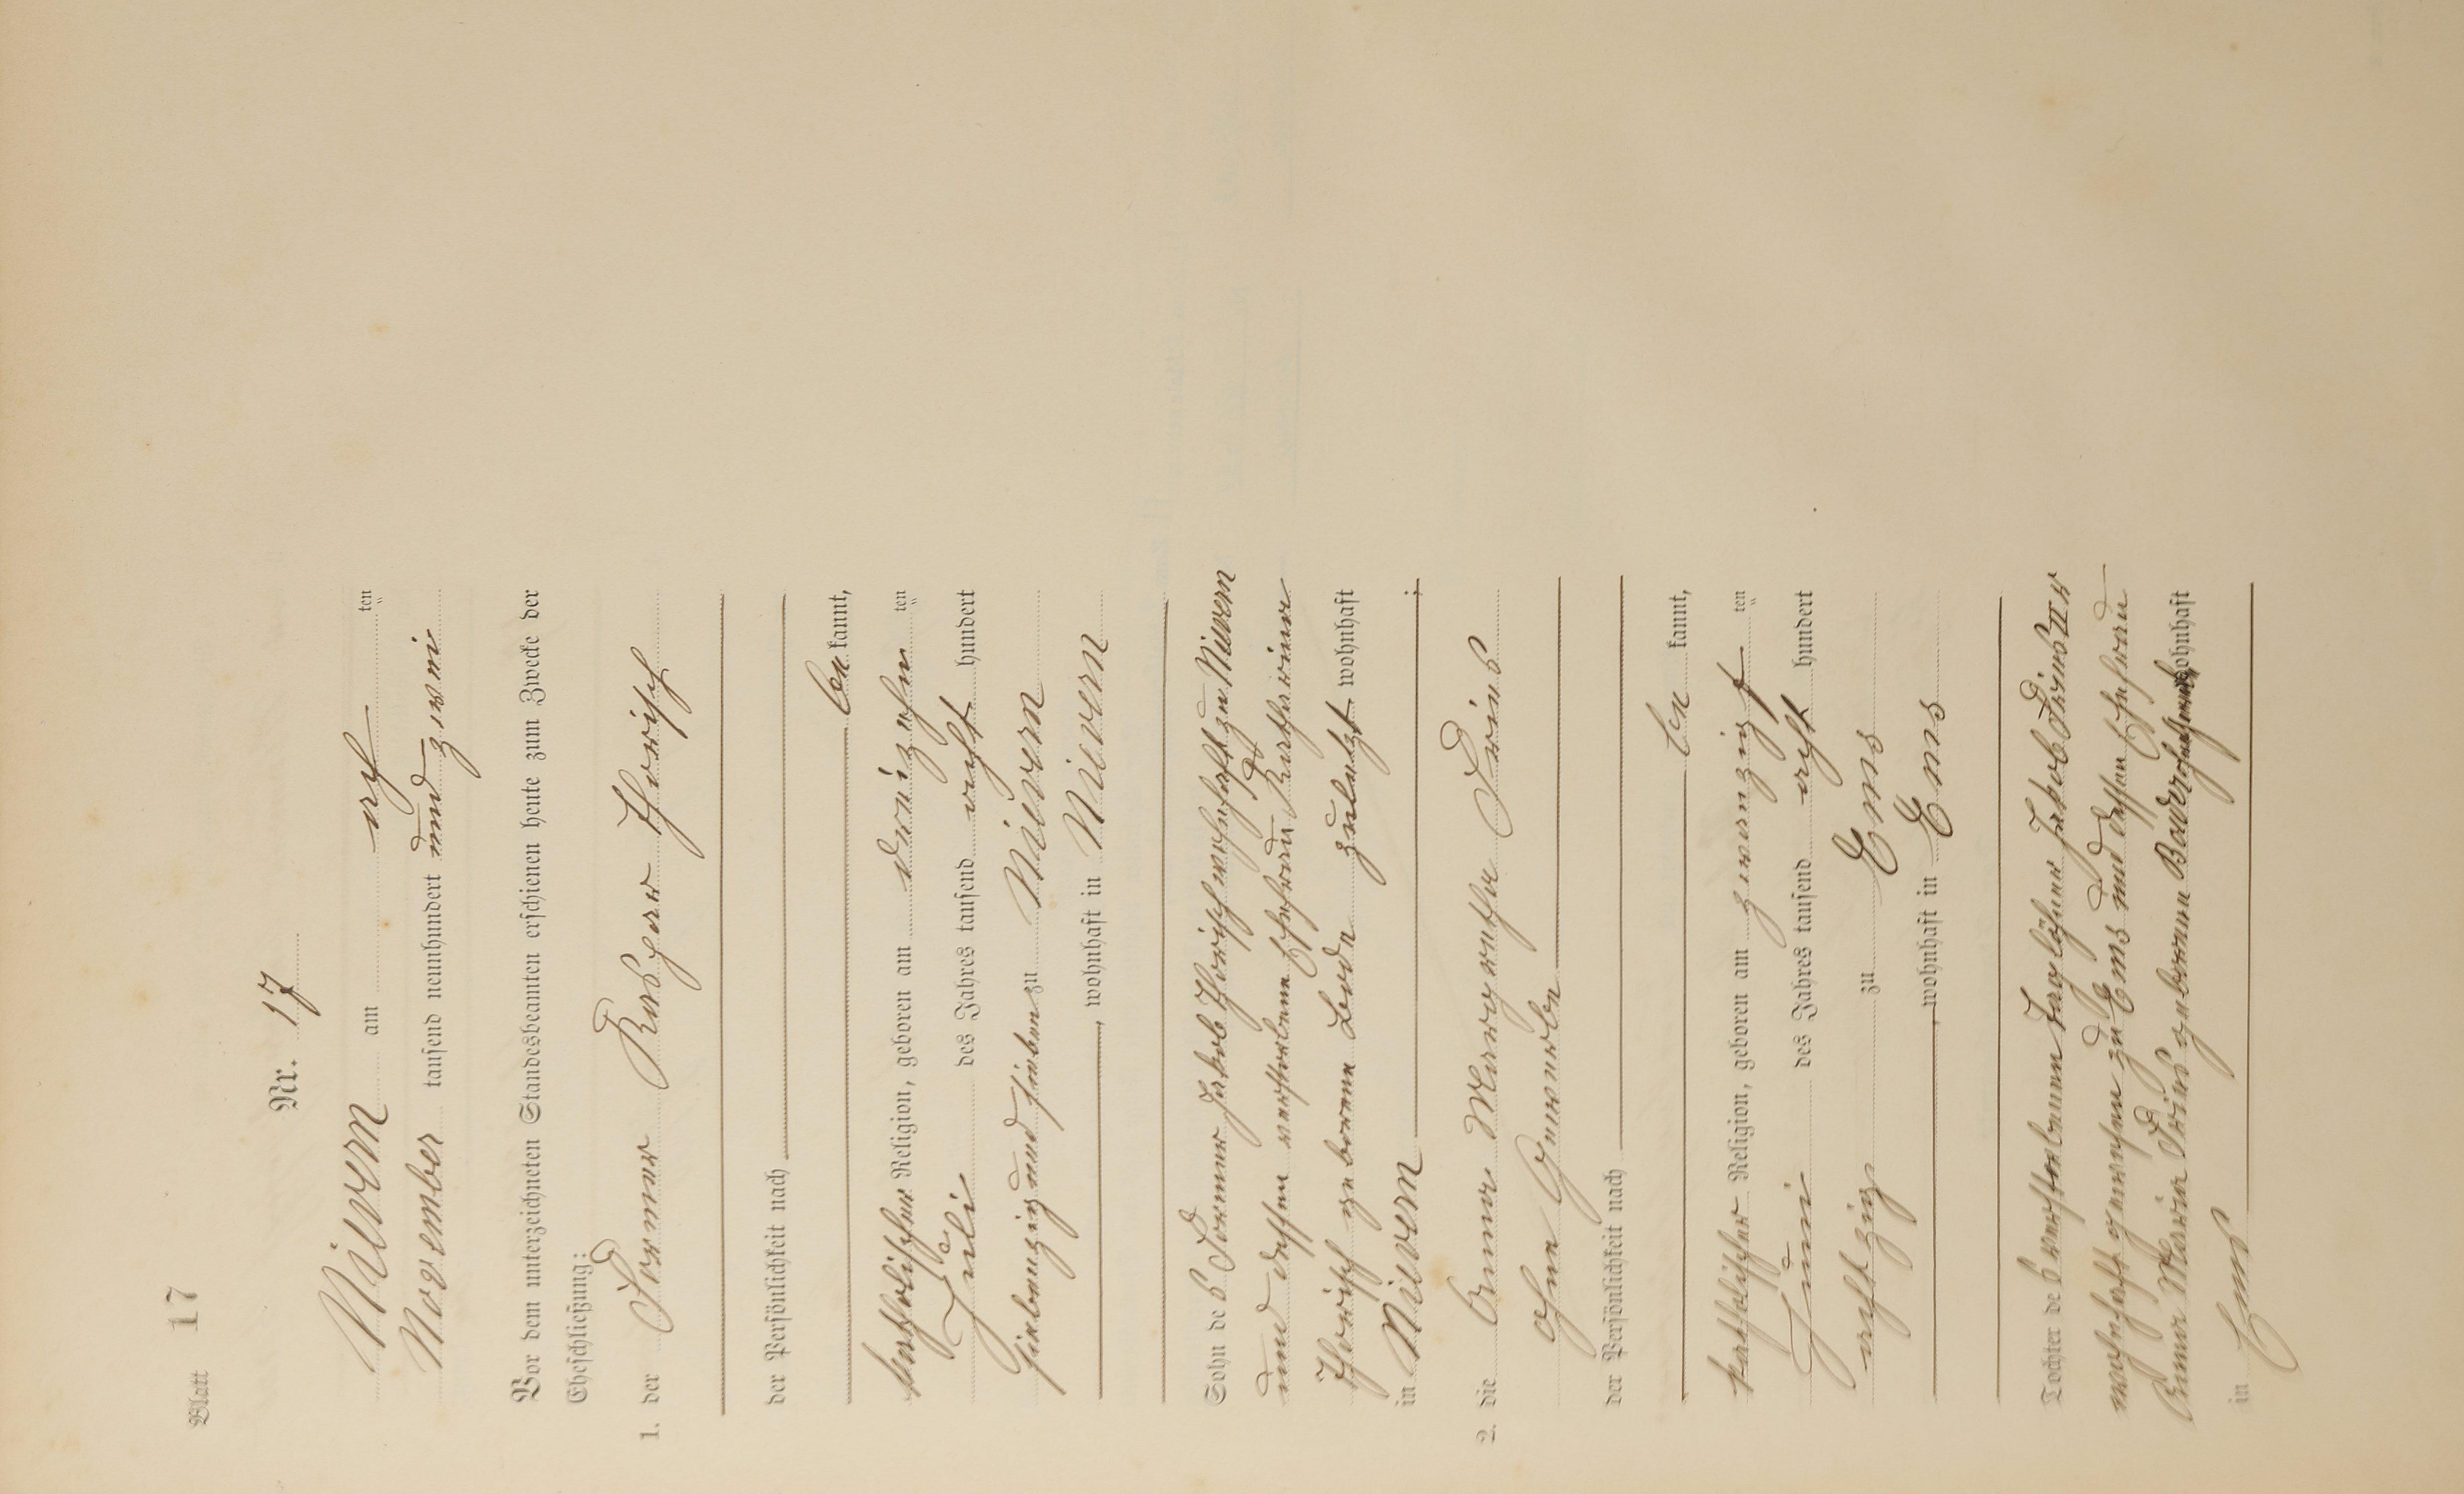 Blatt 17
Nr. 17
Nievern am acht ten
November tausend neunhundert und zwei
Vor dem unterzeichneten Standesbeamten erschienen heute zum Zwecke der
Eheschließung:
1. der Former Kaspar Thorisch
der Persönlichkeit nach
be kannt,
katholischer Religion, geboren am dreizehn ten
Juli des Jahres tausend acht hundert
siebenzig und sieben zu Nievern
, wohnhaft in Nievern
Sohn des Former Jakob Thorisch wohnhaft zu Nievern
und dessen verstorbene Ehefrau Katharina
Thorisch geborene Bode zuletzt wohnhaft
in Nievern ;
2. die Anna Margaretha Prins
ohne Gewerbe
der Persönlichkeit nach
be kannt,
katholischer Religion, geboren am zwanzigst ten
Juni des Jahres tausend acht hundert
achtzig zu Ems
, wohnhaft in Ems
Tochter des verstorbenen Taglöhner Jakob Prins
wohnhaft gewesen zu Ems und dessen Ehefrau
Anna Maria Prins geborenen wohnhaft
in Ems